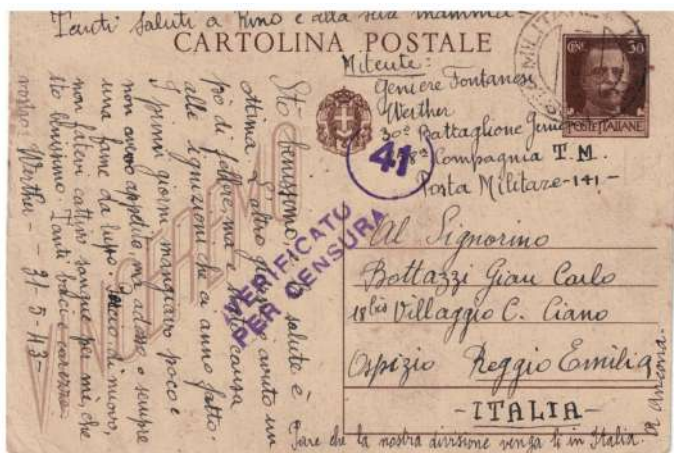 Tanti saluti a Rino e alla sua mamma -
CARTOLINA POSTALE
MILITARE
CENT. 30
POSTE ITALIANE
Mitente:
Geniere Fontanesi
Werther
30° Battaglione Genio
Compagnia T.M.
Posta Militare -141-
41
VERIFICATO
PER CENSURA
VINCEREMO
Al Signorino
Bottazzi Gian Carlo
18bis Villaggio C. Ciano
Ospizio Reggio Emilia
-ITALIA-
Pare che la nostra divisione venga lì in Italia.
Sto benissimo, la salute è
ottima. L'altro giorno avuto un
pò di febbre, ma è causa
alle ignizioni che ci anno fatto.
I primi giorni mangiavo poco e
non avevo appetito, ora adesso o sempre
una fame da lupo. Faccio di nuovo,
non fatevi cattivo sangue per me, che
sto benissimo. Tanti baci e carezze
vostro Werther - - 31-5-43-